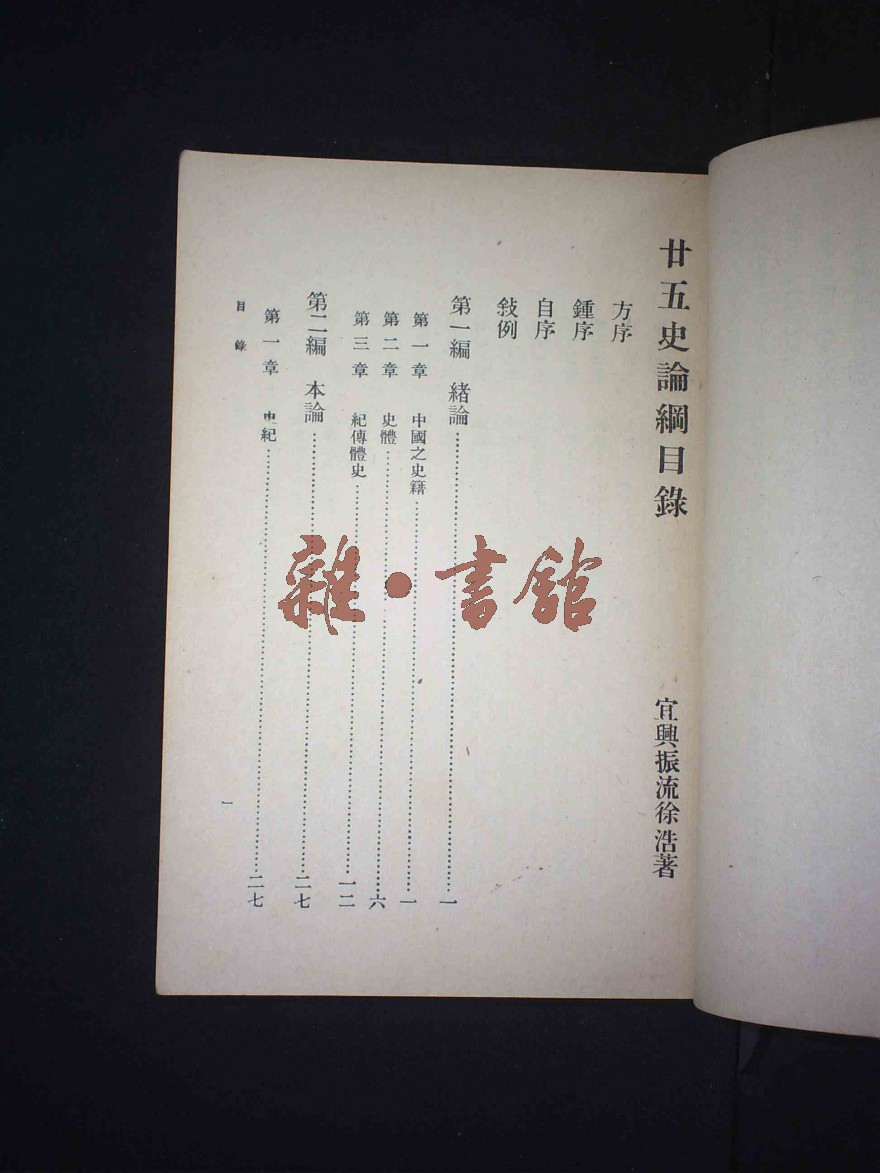 廿五史論綱目錄
宜興振流徐浩著
方序
鍾序
自序
敍例
第一編 緒論……一
第一章 中國之史籍……一
第二章 史體……六
第三章 紀傳體史……一二
第二編 本論……二七
第一章 史紀……二七
目錄
一
雜·書館